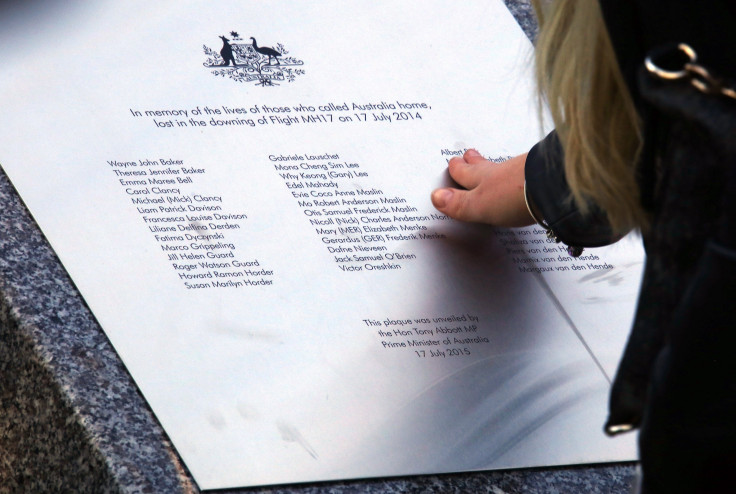 In memory of the lives of those who called Australia home,
lost in the downing of Flight MH17 on 17 July 2014
Wayne John Baker
Theresa Jennifer Baker
Emma Maree Bell
Carol Clancy
Michael (Mick) Clancy
Liam Patrick Davison
Francesca Louise Davison
Liliane Delfina Derden
Fatima Dyczynski
Marco Grippeling
Jill Helen Guard
Roger Watson Guard
Howard Ramon Horder
Susan Marilyn Horder
Gabriele Lauschet
Mona Cheng Sim Lee
Why Keong (Gary) Lee
Edel Mahady
Evie Coco Anne Maslin
Mo Robert Anderson Maslin
Otis Samuel Frederick Maslin
Nicoll (Nick) Charles Anderson
Mary (MER) Elizabeth Menke
Gerardus (GER) Frederik Menke
Dafne Nieveen
Jack Samuel O'Brien
Victor Oreshkin
Albert
van den Hende
van den Hende
Margaux van den Hende
This plaque was unveiled by
the Hon Tony Abbott MP
Prime Minister of Australia
17 July 2015